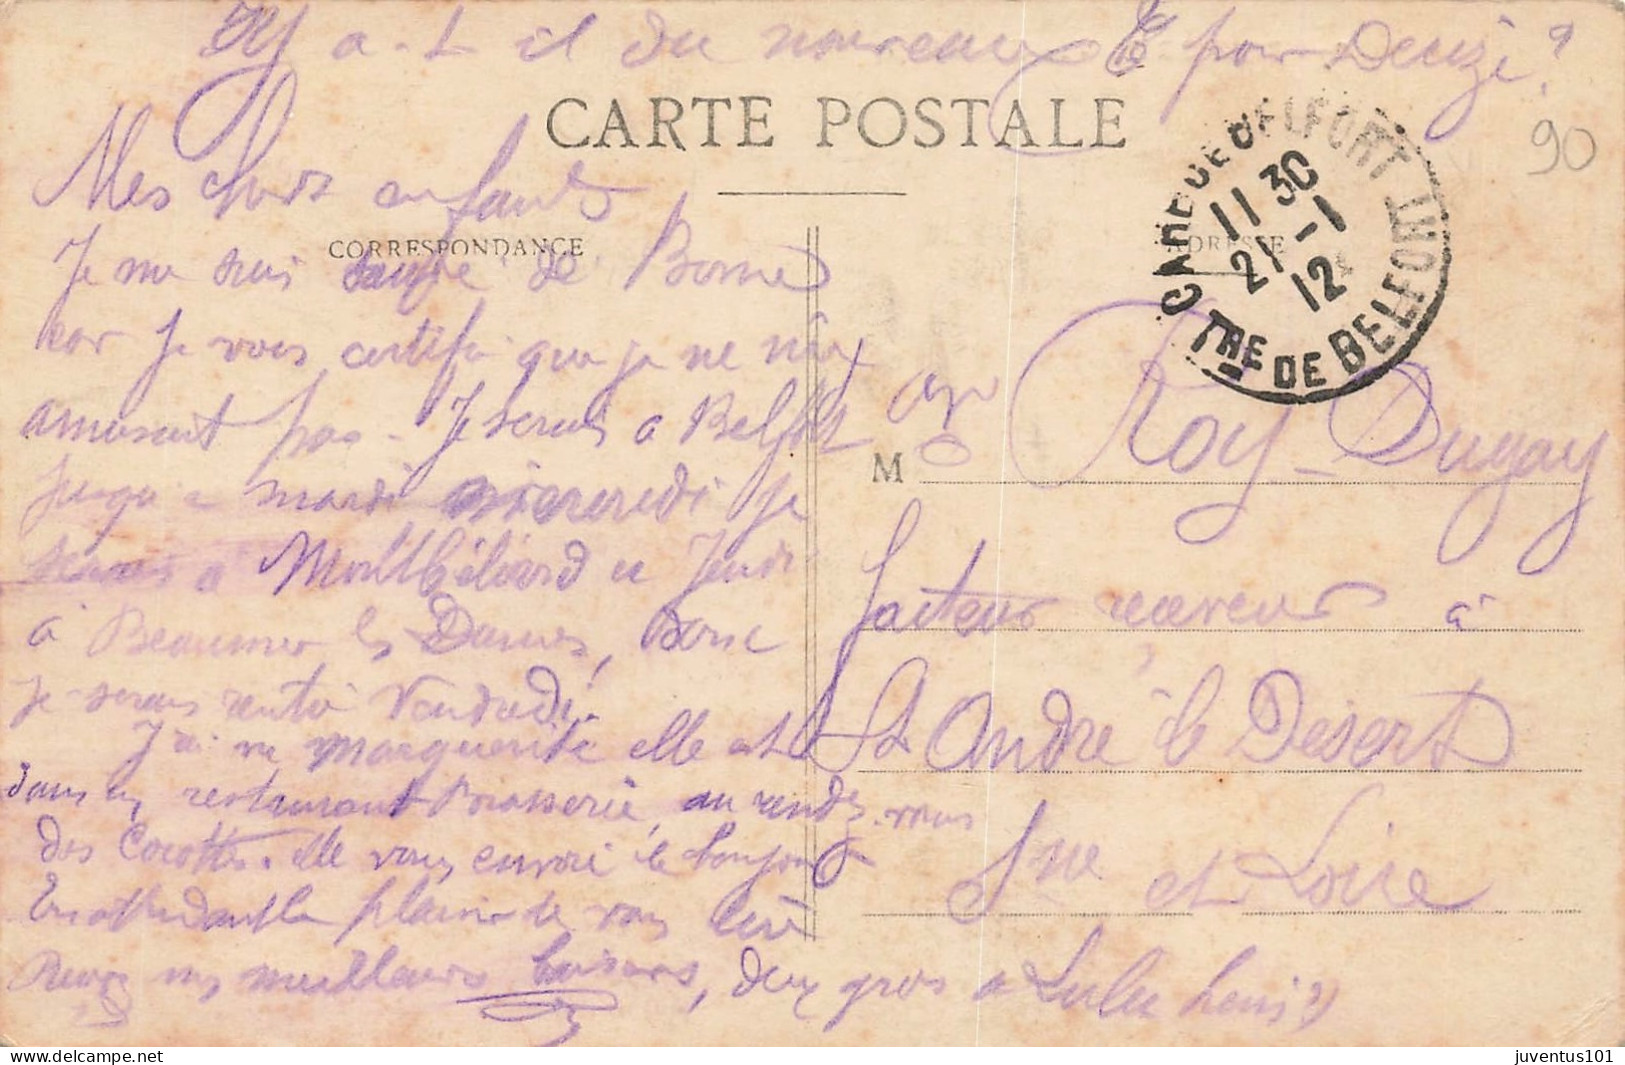 Y a-t il du nouveau pour Denizé ?
CARTE POSTALE
90
Mes chers enfants
CORRESPONDANCE
ADRESSE
GARE DE BELFORT TRE DE BELFORT
11 30
21 -1
12
Je me suis de
car Je vous certifi que je ne m'y
amusent pas - Je serais a Belfort
Jusqu'a mardi mercredi je
serais a Montbéliard et Jeudi
à Beaumer les Dames, Donc
je serais rentré Vendredi.
J'ai vu Marguerite elle est
dans un restaurant Brasserie, au rendez-vous
des Cocottes. elle vous envoie le bonjour
En attendant le plaisir de vous lire
Recevez mes meilleurs baisers, deux gros a Lulu
M Roy-Dugay
facteur receveur à
St André le Désert
Sne et Loire
juventus101